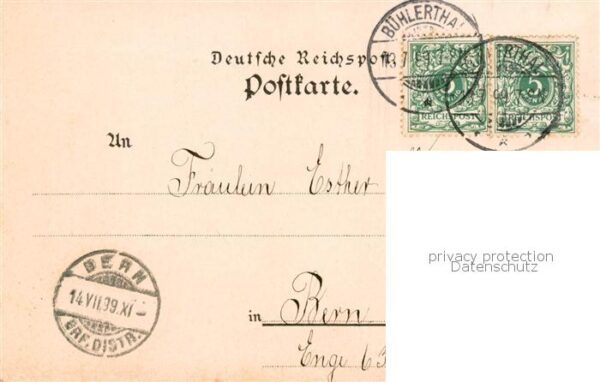 BÜHLERTHAL
13.7.99.7-8N.
5
REICHSPOST
5
REICHSPOST
Deutsche Reichspost
Postkarte.
An
Fräulein Esther
privacy protection
Datenschutz
BERN
14.VII.99.XI-
BRF.DISTR.
in Bern
Enge 63